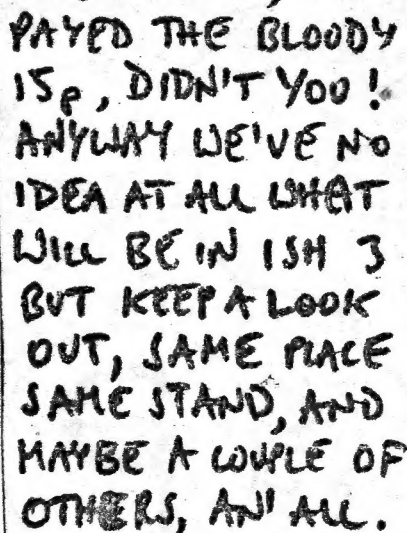 PAYED THE BLOODY
15p, DIDN'T YOU!
ANYWAY WE'VE NO
IDEA AT ALL WHAT
WILL BE IN ISH 3
BUT KEEP A LOOK
OUT, SAME PLACE
SAME STAND, AND
MAYBE A COUPLE OF
OTHERS, AN' ALL.